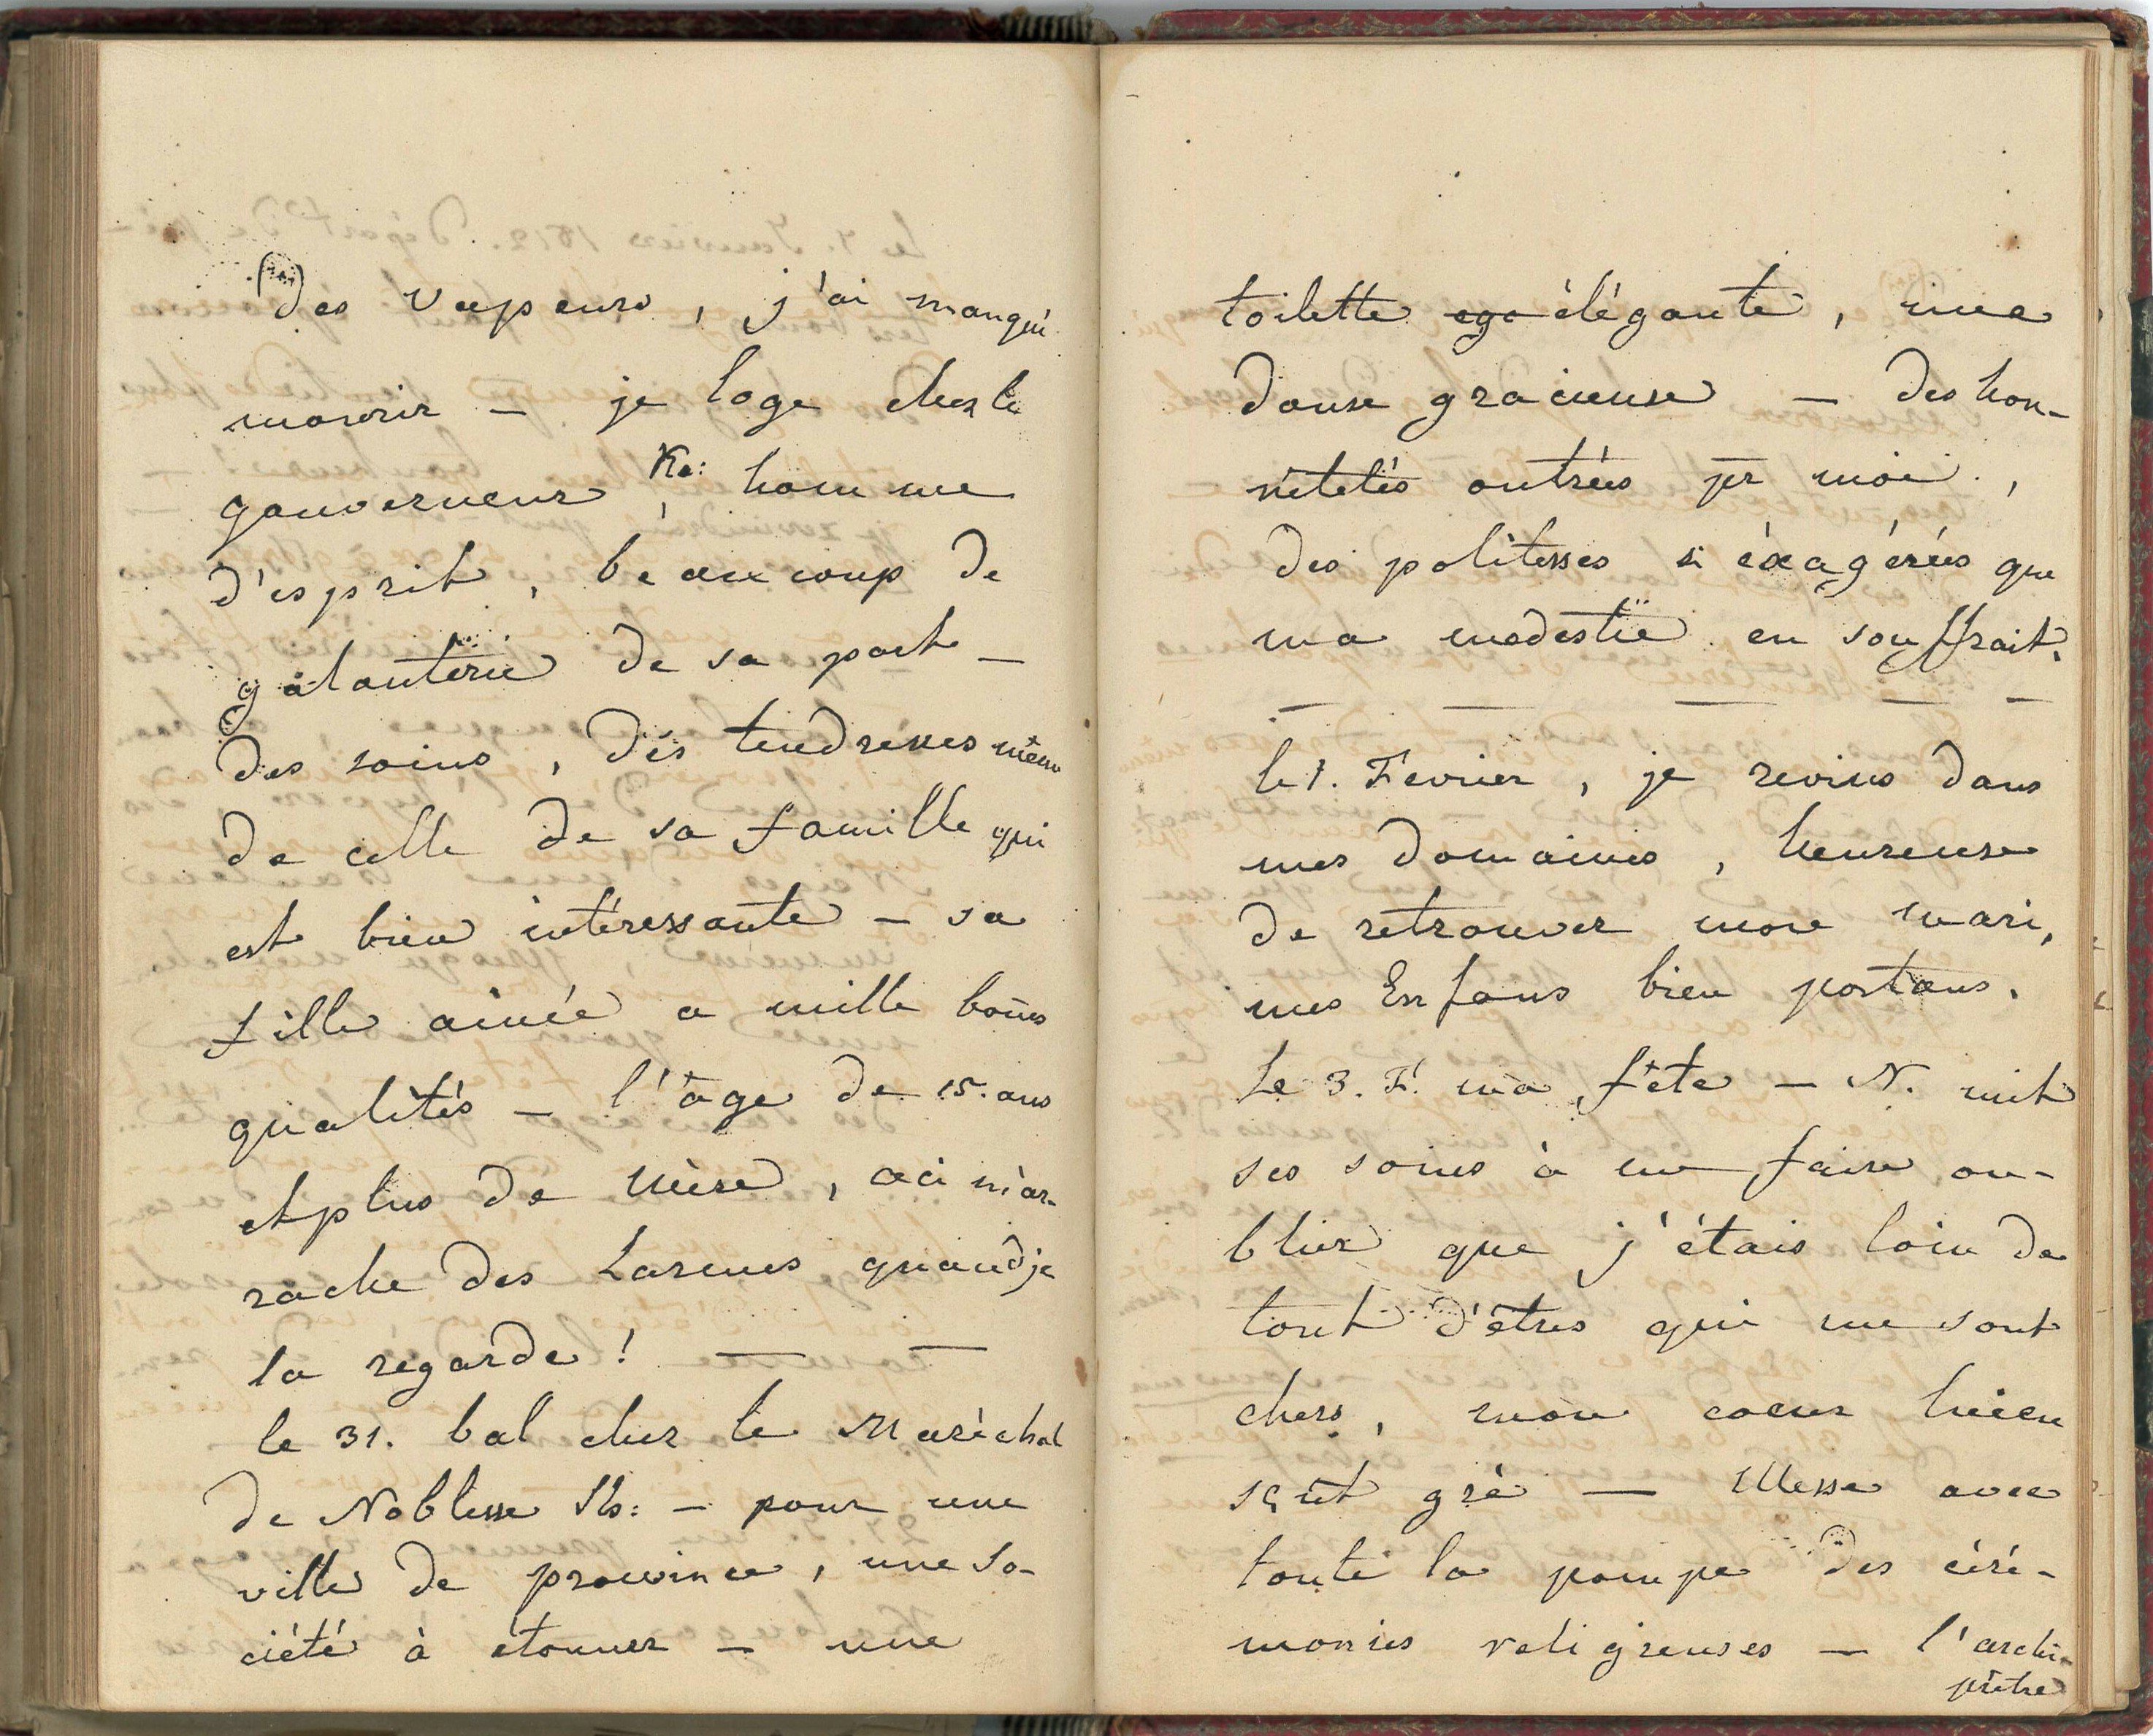 des vapeurs, j'ai manqué
mourir — je loge chez le
gouverneur Ka:, homme
d'esprit, beaucoup de
galanterie de sa part —
des soins, des tendresses même
de celle de sa famille qui
est bien intéressante — sa
fille ainée a mille bones
qualités — l'âge de 15. ans
et plus de Mère, ceci m'ar-
rache des Larmes quand je
la regarde! — —
le 31. bal chez le Maréchal
de Noblesse — pour une
ville de province, une so-
ciété à étonner — une
toilette élégante, une
danse gracieuse — des hon-
nêtetés outrées pr moi.,
des politesses si éxagérées que
ma modestie en souffrait.
— — — — —
le 1. Fevrier, je revins dans
mes domaines, heureuse
de retrouver mon mari,
mes Enfans bien portans.
Le 3. F. ma fête — N. mit
ses soins à me faire ou-
blier que j'étais loin de
tout d'êtres qui me sont
chers, mon coeur lui en
sçut gré — Messe avec
toute la pompe des céré-
monies religieuses — l'archi-
prêtre